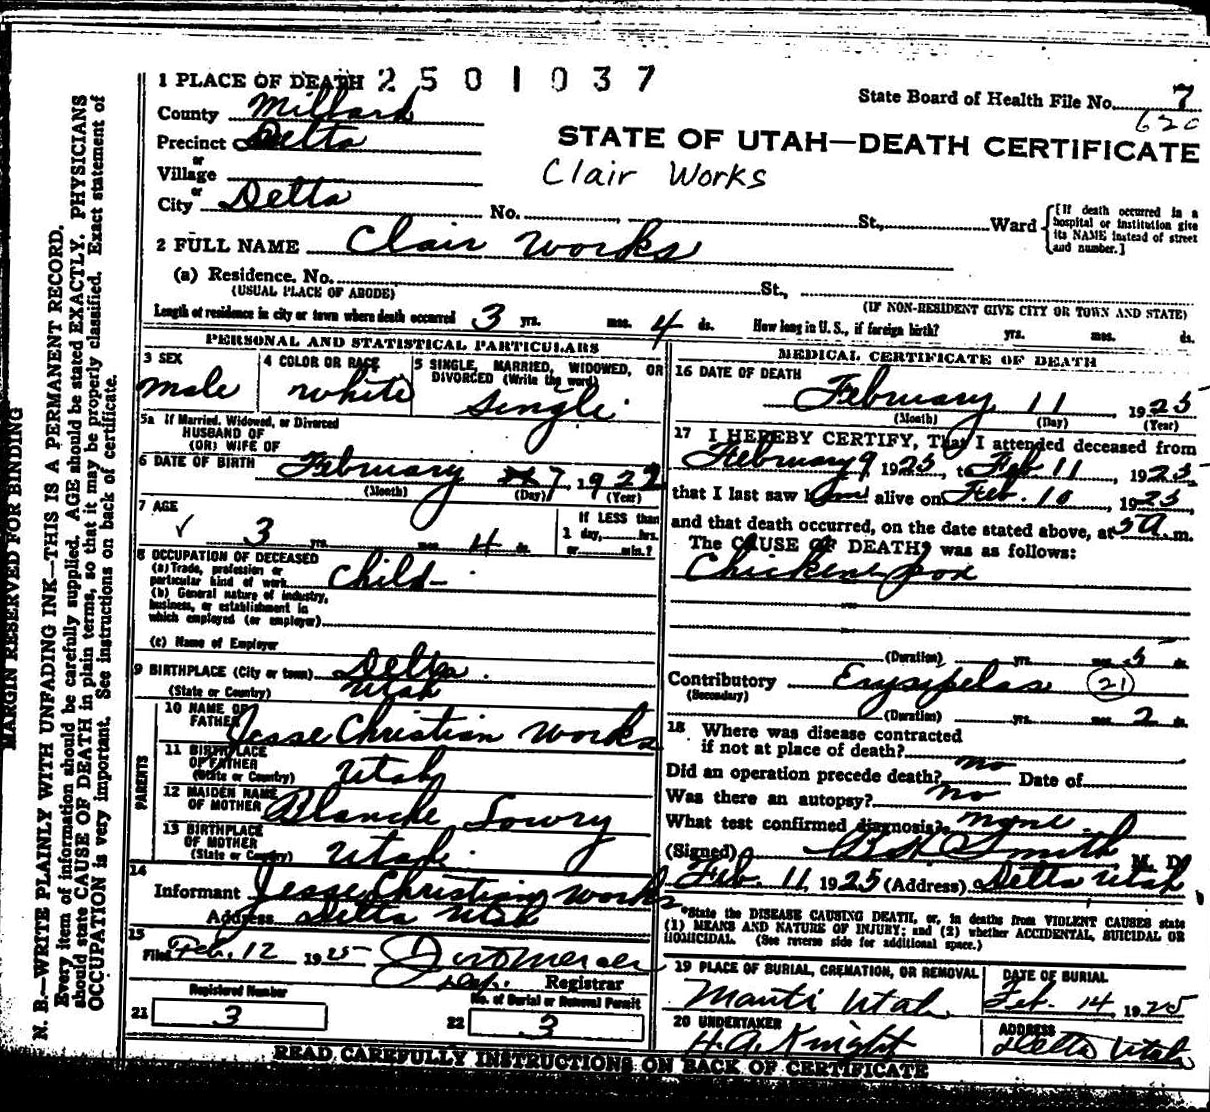 1 PLACE OF DEATH 2501037
State Board of Health File No. 7
620
County Millard
Precinct Delta
STATE OF UTAH—DEATH CERTIFICATE
or
Village
Clair Works
or
City Delta No. St., Ward
[If death occurred in a
hospital or institution give
its NAME instead of street
and number.]
2 FULL NAME Clair Works
(a) Residence. No. St.,
(USUAL PLACE OF ABODE) (IF NON-RESIDENT GIVE CITY OR TOWN AND STATE)
Length of residence in city or town where death occurred 3 yrs. mos. 4 ds. How long in U. S., if foreign birth? yrs. mos. ds.
PERSONAL AND STATISTICAL PARTICULARS
3 SEX
male
4 COLOR OR RACE
white
5 SINGLE, MARRIED, WIDOWED, OR
DIVORCED (Write the word)
single
5a If Married, Widowed, or Divorced
HUSBAND OF
(OR) WIFE OF
6 DATE OF BIRTH February 7, 1922
(Month) (Day) (Year)
7 AGE
3 yrs. mos. 4 ds.
If LESS than
1 day, hrs.
or min.?
8 OCCUPATION OF DECEASED
(a) Trade, profession or
particular kind of work Child
(b) General nature of industry,
business, or establishment in
which employed (or employer)
(c) Name of Employer
9 BIRTHPLACE (City or town) Delta
(State or Country) Utah
PARENTS
10 NAME OF
FATHER Jesse Christian Works
11 BIRTHPLACE
OF FATHER
(State or Country) Utah
12 MAIDEN NAME
OF MOTHER Blanche Lowry
13 BIRTHPLACE
OF MOTHER
(State or Country) Utah
14
Informant Jesse Christian Works
Address Delta Utah
15
Filed Feb. 12 1925
Dep. Registrar
Registered Number
21 3
No. of Burial or Removal Permit
22 3
MEDICAL CERTIFICATE OF DEATH
16 DATE OF DEATH
February 11, 1925
(Month) (Day) (Year)
17 I HEREBY CERTIFY, That I attended deceased from
February 9 1925, to Feb 11, 1925
that I last saw him alive on Feb. 10, 1925,
and that death occurred, on the date stated above, at 5 a.m.
The CAUSE OF DEATH* was as follows:
Chickene pox
(Duration) yrs. mos. 5 ds.
Contributory Erysipelas 21
(Secondary)
(Duration) yrs. mos. 2 ds.
18 Where was disease contracted
if not at place of death?
Did an operation precede death? no Date of
Was there an autopsy? no
What test confirmed diagnosis? none
(Signed) Smith M. D.
Feb. 11, 1925 (Address) Delta Utah
*State the DISEASE CAUSING DEATH, or, in deaths from VIOLENT CAUSES state
(1) MEANS AND NATURE OF INJURY; and (2) whether ACCIDENTAL, SUICIDAL OR
HOMICIDAL. (See reverse side for additional space.)
19 PLACE OF BURIAL, CREMATION, OR REMOVAL
Manti Utah
DATE OF BURIAL
Feb. 14 1925
20 UNDERTAKER
H. A. Knight
ADDRESS
Delta Utah
READ CAREFULLY INSTRUCTIONS ON BACK OF CERTIFICATE
MARGIN RESERVED FOR BINDING
N. B.—WRITE PLAINLY WITH UNFADING INK—THIS IS A PERMANENT RECORD.
Every item of information should be carefully supplied. AGE should be stated EXACTLY. PHYSICIANS
should state CAUSE OF DEATH in plain terms, so that it may be properly classified. Exact statement of
OCCUPATION is very important. See instructions on back of certificate.